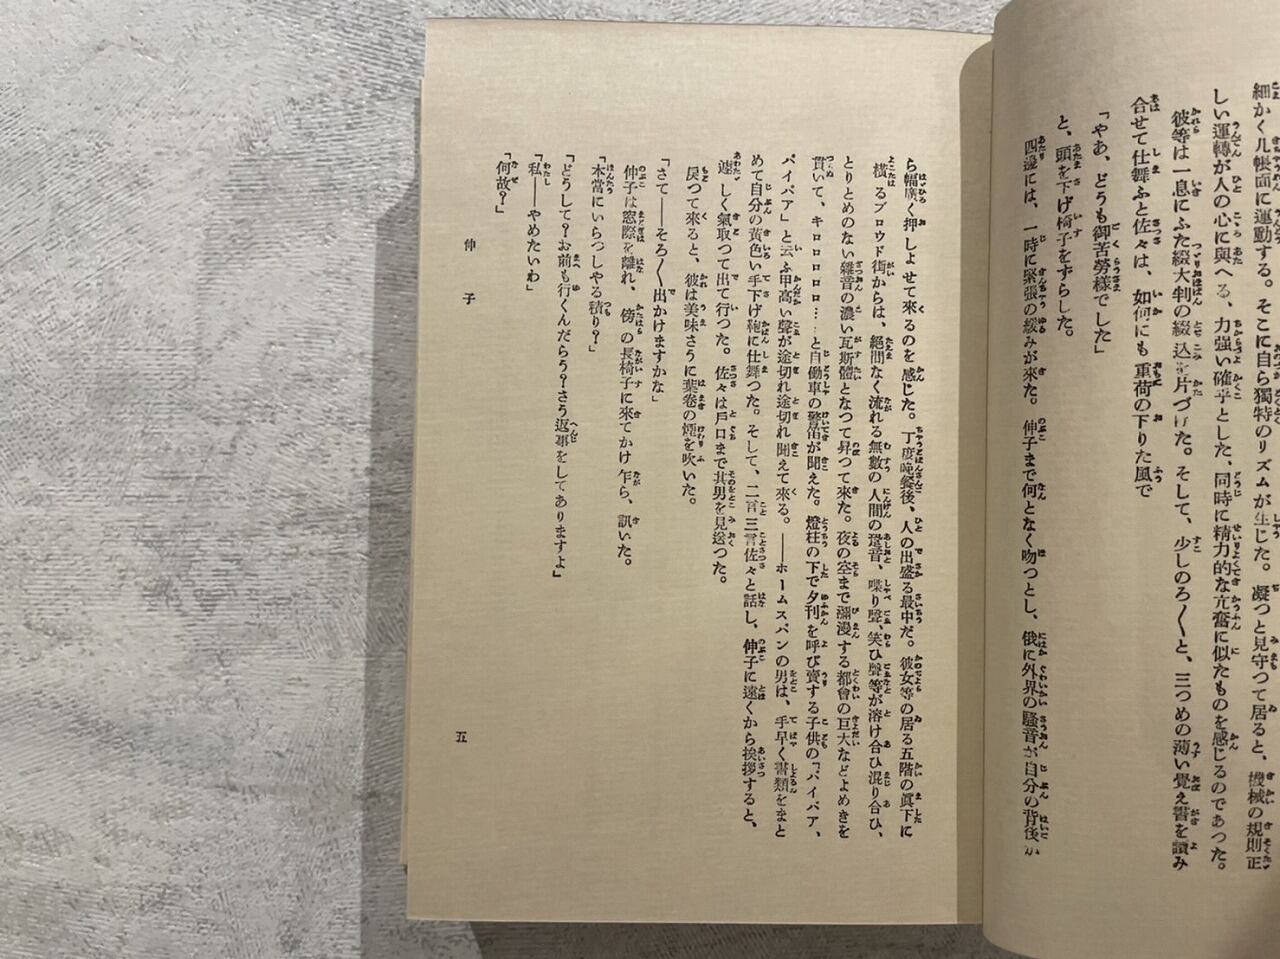 細かく几帳面に運動する。そこに自ら獨特のリズムが生じた。凝つと見守つて居ると、機械の規則正
しい運轉が人の心に與へる、力強い確乎とした、同時に精力的な亢奮に似たものを感じるのであつた。
彼等は一息にふた綴大判の綴込を片づけた。そして、少しのろ〱と、三つめの薄い覺え書を讀み
合せて仕舞ふと佐々は、如何にも重荷の下りた風で
「やあ、どうも御苦勞樣でした」
と、頭を下げ椅子をずらした。
四邊には、一時に緊張の緩みが來た。伸子まで何となく吻つとし、俄に外界の騷音が自分の背後か
ら幅廣く押しよせて來るのを感じた。丁度晩餐後、人の出盛る最中だ。彼女等の居る五階の眞下に
橫るブロウド街からは、絕間なく流れる無數の人間の跫音、喋り聲、笑ひ聲等が溶け合ひ混り合ひ、
とりとめのない雜音の濃い瓦斯體となつて昇つて來た。夜の空まで瀰漫する都會の巨大などよめきを
貫いて、キロロロロロ…と自働車の警笛が聞えた。燈柱の下で夕刊を呼び賣する子供の「パイパア、
パイパア」と云ふ甲高い聲が途切れ途切れ聞えて來る。――ホームスパンの男は、手早く書類をまと
めて自分の黄色い手下げ鞄に仕舞つた。そして、二言三言佐々と話し、伸子に遠くから挨拶すると、
遽しく氣取つて出て行つた。佐々は戸口まで其男を見送つた。
戾つて來ると、彼は美味さうに葉卷の煙を吹いた。
「さて――そろ〱出かけますかな」
伸子は窓際を離れ、傍の長椅子に來てかけ乍ら、訊いた。
「本當にいらつしやる積り？」
「どうして？お前も行くんだらう？さう返事をしてありますよ」
「私――やめたいわ」
「何故？」
伸子
五